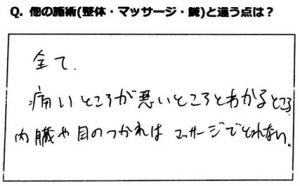 Q. 他の施術(整体・マッサージ・鍼)と違う点は?
全て.
痛いところが悪いところとわかるところ
内臓や目のつかれは マッサージでとれない.